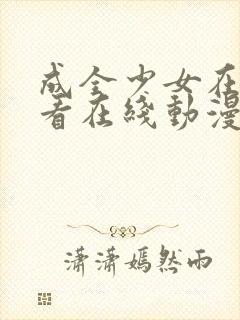 成全少女在
看在綫動漫
瀟瀟嫣然雨